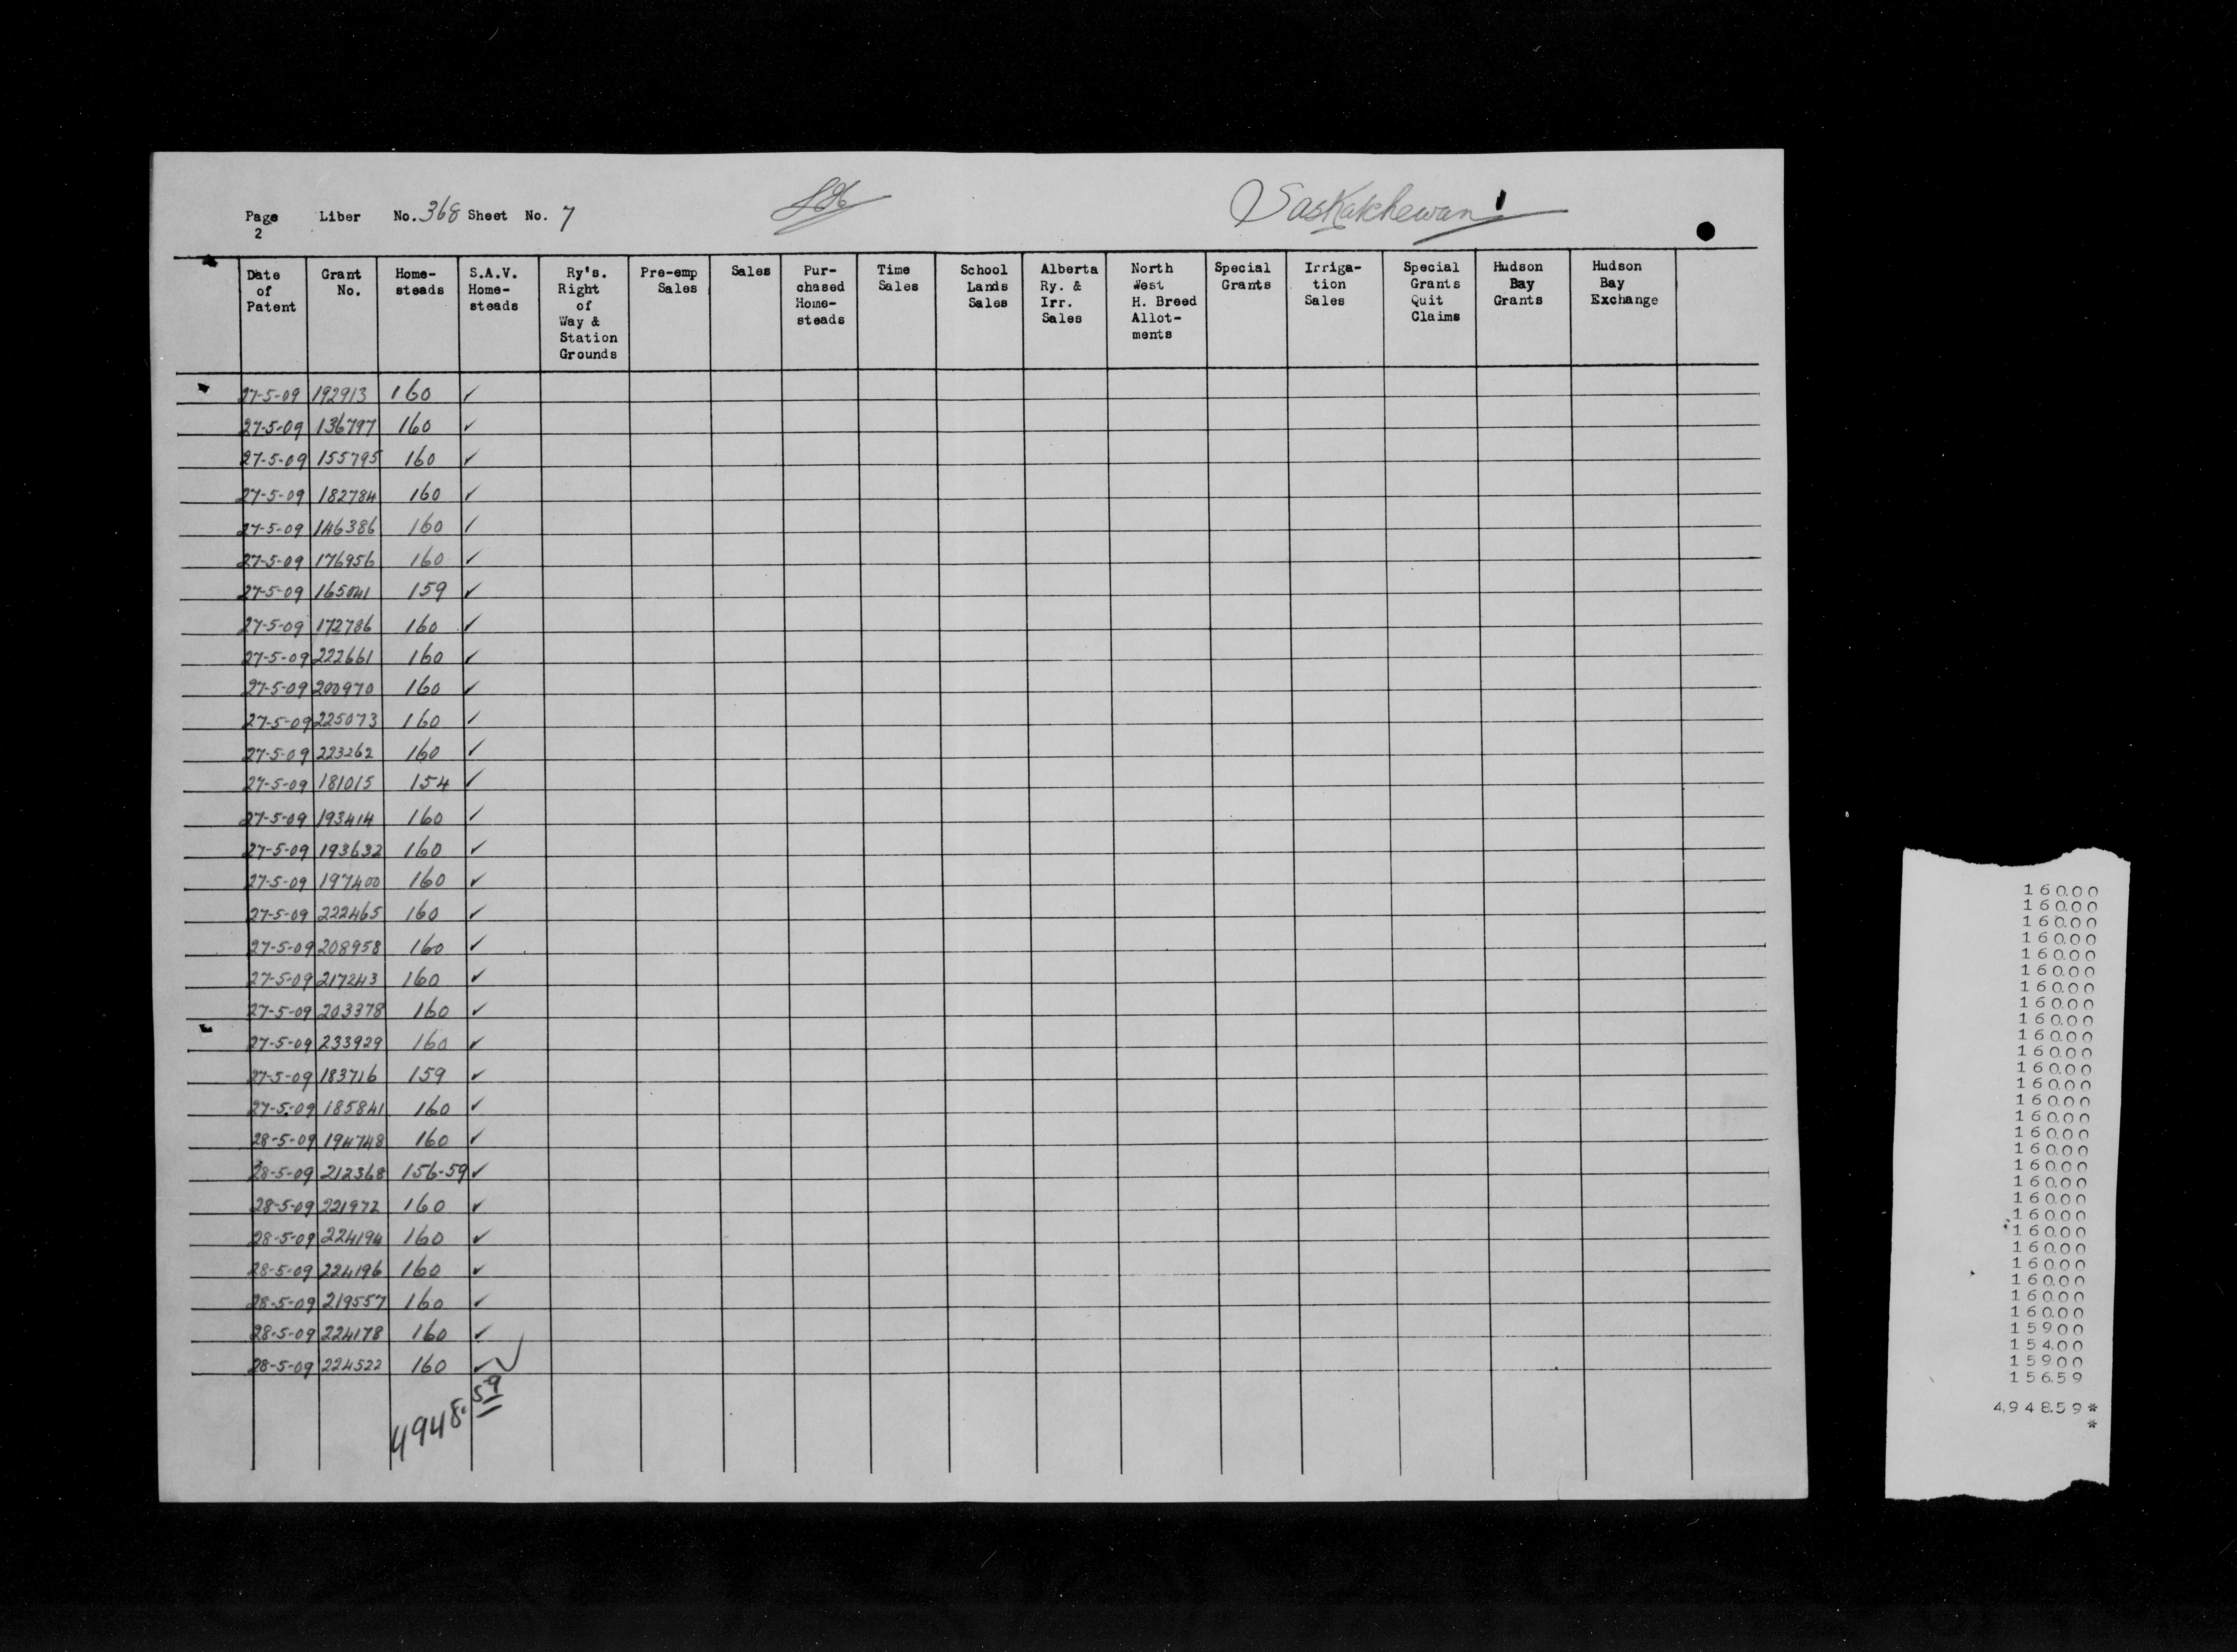 Saskatchewan
Page 2 Liber No. 368 Sheet No. 7
Date of Patent | Grant No. | Home-steads | S.A.V. Home-steads | Ry's. Right of Way & Station Grounds | Pre-emp Sales | Sales | Pur-chased Home-steads | Time Sales | School Lands Sales | Alberta Ry. & Irr. Sales | North West H. Breed Allot-ments | Special Grants | Irriga-tion Sales | Special Grants Quit Claims | Hudson Bay Grants | Hudson Bay Exchange
27-5-09 192913 160 ✓
27-5-09 136797 160 ✓
27-5-09 155795 160 ✓
27-5-09 182784 160 ✓
27-5-09 146386 160 ✓
27-5-09 176956 160 ✓
27-5-09 165041 159 ✓
27-5-09 172786 160 ✓
27-5-09 222661 160 ✓
27-5-09 200970 160 ✓
27-5-09 225073 160 ✓
27-5-09 223262 160 ✓
27-5-09 181015 154 ✓
27-5-09 193414 160 ✓
27-5-09 193632 160 ✓
27-5-09 197400 160 ✓
27-5-09 222465 160 ✓
27-5-09 208958 160 ✓
27-5-09 217243 160 ✓
27-5-09 203378 160 ✓
27-5-09 233929 160 ✓
27-5-09 183716 159 ✓
27-5-09 185841 160 ✓
28-5-09 194748 160 ✓
28-5-09 212368 156-59 ✓
28-5-09 221972 160 ✓
28-5-09 224194 160 ✓
28-5-09 224196 160 ✓
28-5-09 219557 160 ✓
28-5-09 224178 160 ✓
28-5-09 224522 160 ✓
4948.59
160.00
160.00
160.00
160.00
160.00
160.00
160.00
160.00
160.00
160.00
160.00
160.00
160.00
160.00
160.00
160.00
160.00
160.00
160.00
160.00
160.00
160.00
160.00
160.00
160.00
160.00
160.00
159.00
154.00
159.00
156.59
4,948.59*
*